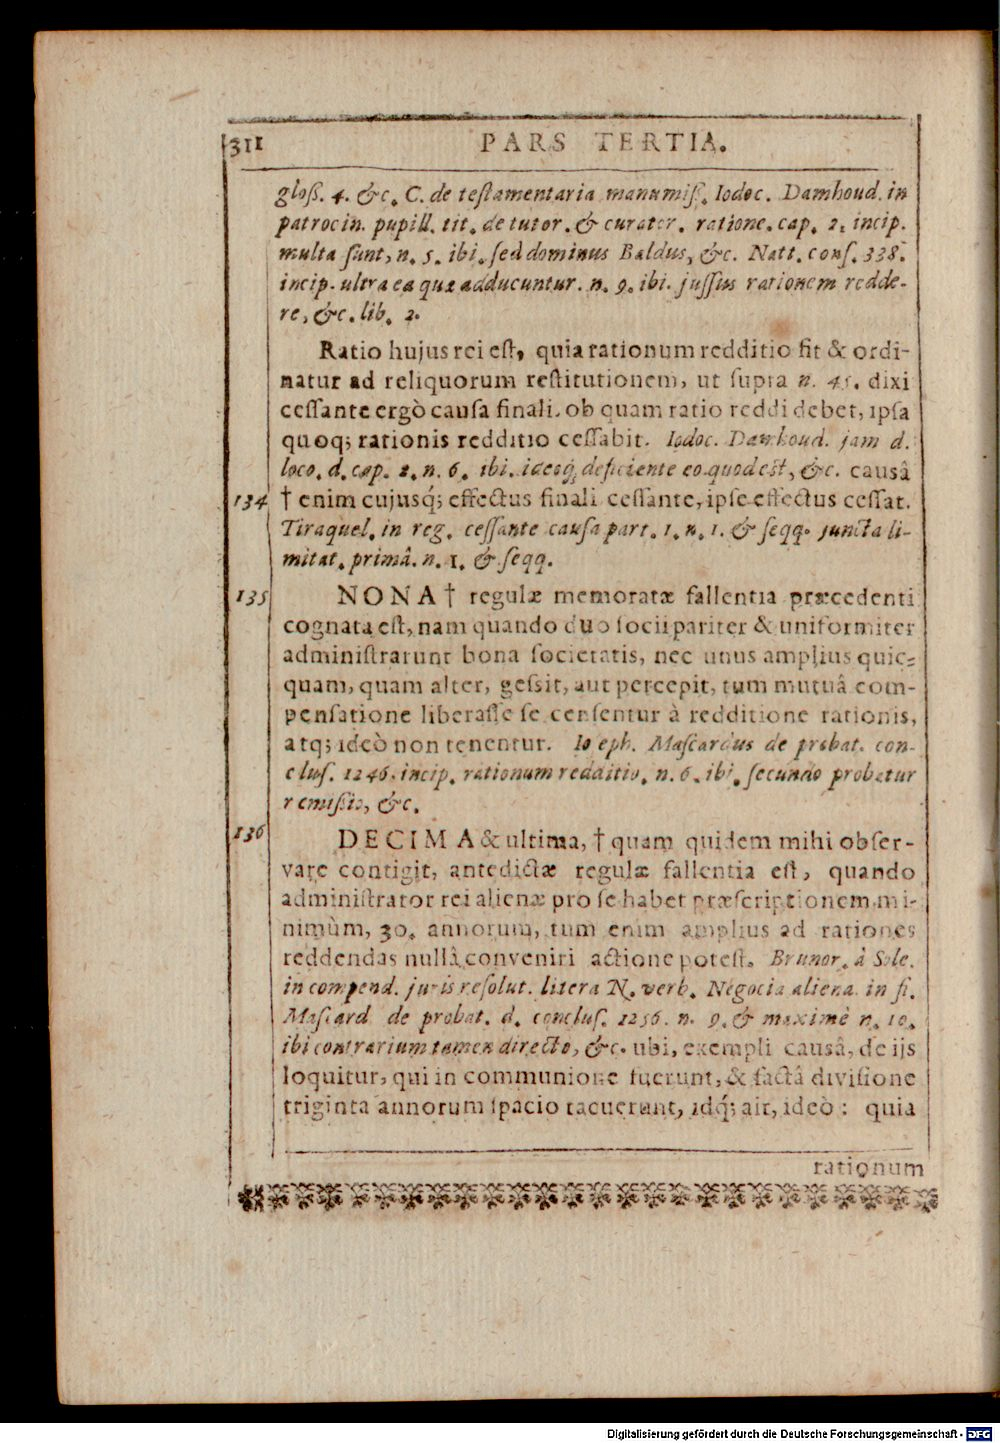 311 PARS TERTIA.
gloſſ. 4. &c. C. de teſtamentaria manumiſſ. Iodoc. Damhoud. in
patrocin. pupill. tit. de tutor. & curator. ratione. cap. 2. incip.
multa ſunt, n. 5. ibi. ſed dominus Baldus, &c. Natt. conſ. 338.
incip. ultra ea quæ adducuntur. n. 9. ibi. juſſus rationem redde-
re, &c. lib. 2.
Ratio hujus rei eſt, quia rationum redditio fit & ordi-
natur ad reliquorum reſtitutionem, ut ſupra n. 45. dixi
ceſſante ergò cauſa finali, ob quam ratio reddi debet, ipſa
quoq; rationis redditio ceſſabit. Iodoc. Damhoud. jam d.
loco. d. cap. 2. n. 6. ibi. ideoq; deficiente eo quod eſt, &c. causâ
134 † enim cujusq́; effectus finali ceſſante, ipſe effectus ceſſat.
Tiraquel. in reg. ceſſante cauſa part. 1. n. 1. & ſeqq. juncta li-
mitat. primâ. n. 1. & ſeqq.
135 NONA † regulæ memoratæ fallentia præcedenti
cognata eſt, nam quando duo ſocii pariter & uniformiter
adminiſtrarunt bona ſocietatis, nec unus amplius quic-
quam, quam alter, geſsit, aut percepit, tum mutuâ com-
penſatione liberaſſe ſe cenſentur à redditione rationis,
atq; ideò non tenentur. Ioſeph. Maſcardus de probat. con-
cluſ. 1246. incip. rationum redditio. n. 6. ibi. ſecundo probatur
remiſſio, &c.
136 DECIMA & ultima, † quam quidem mihi obſer-
vare contigit, antedictæ regulæ fallentia eſt, quando
adminiſtrator rei alienæ pro ſe habet præſcriptionem mi-
nimùm, 30. annorum, tum enim amplius ad rationes
reddendas nullâ conveniri actione poteſt. Brunor. à Sole.
in compend. juris reſolut. litera N. verb. Negocia aliena. in fi.
Maſcard de probat. d. concluſ. 1256. n. 9. & maximè n. 10.
ibi contrarium tamen directo, &c. ubi, exempli causâ, de ijs
loquitur, qui in communione fuerunt, & factâ diviſione
triginta annorum ſpacio tacuerunt, idq́; ait, ideò: quia
rationum
Digitalisierung gefördert durch die Deutsche Forschungsgemeinschaft - DFG